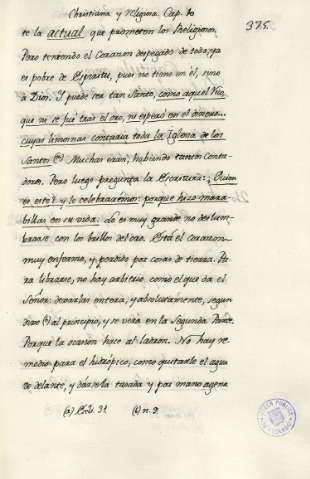 Christiana y Religiosa. Cap. 10
375.
to la actual, que prometen los Religiosos.
Pero teniendo el Corazon despegado de todo, ya
es pobre de Espiritu, pues no tiene en èl, sino
à Dios. Y puede ser tan Santo, como aquel Rico,
que ni se fuè tràs el oro, ni esperò en el dinero:
cuyas limosnas contarìa toda la Iglesia de los
Santos (a) Muchas eran, habiendo tantos Conta-
dores. Pero luego pregunta la Escritura: Quien
es este? y le celebrarèmos: porque hizo mara-
billas en su vida: Lo es muy grande no deslum-
brarse con los brillos del oro. Està el corazon
muy enfermo, y perdido por cosas de tierra. Pa
ra librarse, no hay arbitrio, como el que dà el
Señor: dexarlas entera, y absolutamente, segun
dixe (b) al principio, y se verà en la Segunda Parte.
Porque la ocasion hace al ladron. No hay re
medio para el hidropico, como quitarle el agua
de delante, y darsela tasada y por mano agena
(a) Ecli. 31 (b) n. 2